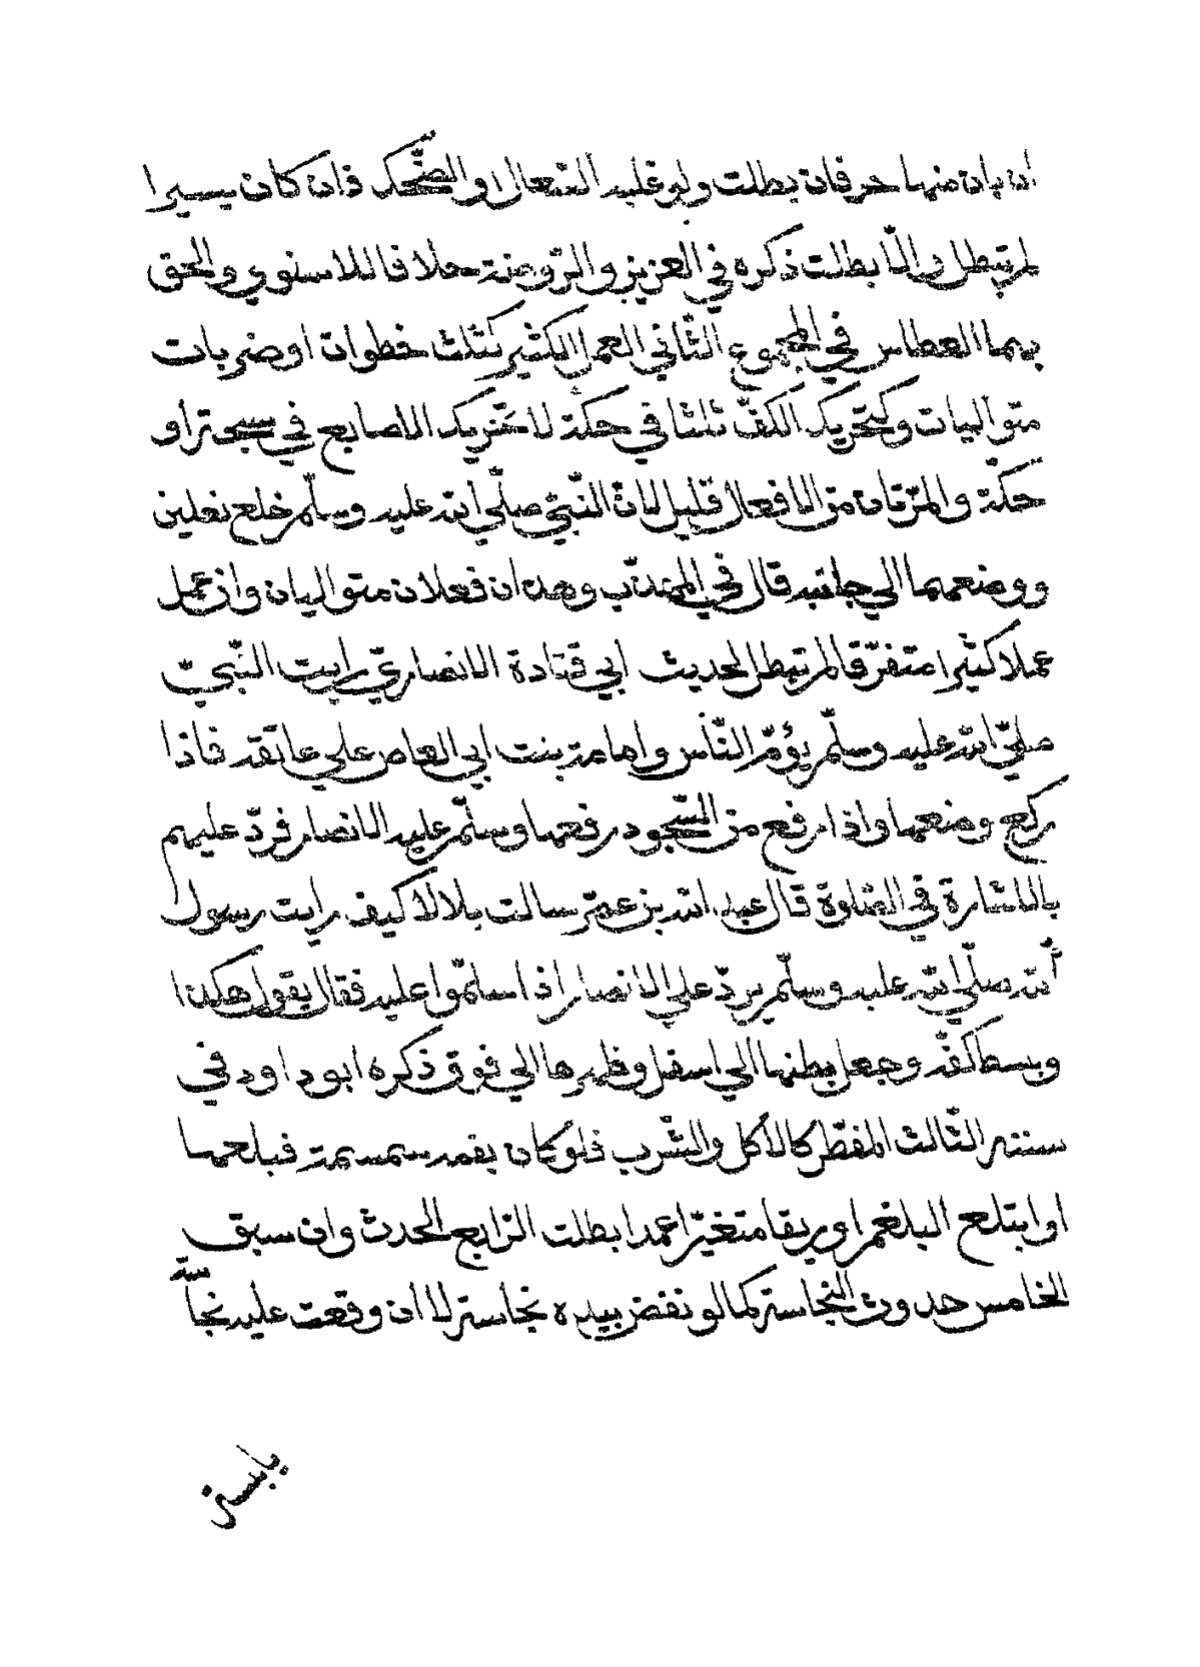 ان بان منها حرفان بطلت ولو غلبه السعال والضّحك فان كان يسيرا
لم تبطل والّا بطلت ذكره في العزيز والرّوضة خلافا للاسنوي والحق
بهما العطاس في المجموع الثّاني العمل الكثير كثلث خطوات او ضربات
متواليات وكتحريك الكفّ ثلثا في حكّة لا تحريك الاصابع في سبحة او
حكّة والمرّتان من الافعال قليل لانّ النّبيّ صلّي الله عليه وسلّم خلع نعلين
ووضعهما الي جانبه قال في المهذّب وهذان فعلان متواليان وان عمل
عملا كثيرا متفرّقا لم تبطل لحديث ابي قتادة الانصاريّ رايت النّبيّ
صليّ الله عليه وسلّم يؤمّ النّاس وامامة بنت ابي العاص علي عاتقه فاذا
ركع وضعها واذا رفع من السّجود رفعها وسلّم عليه الانصار فردّ عليهم
بالاشارة في الصّلوة قال عبد الله بن عمر سالت بلالا كيف رايت رسول
الله صلّي الله عليه وسلّم يردّ علي الانصار اذا سلّموا عليه فقال يقول هكذا
وبسط كفّه وجعل بطنها الي اسفل وظهرها الي فوق ذكره ابو داود في
سننه الثّالث المفطّر كالأكل والشّرب فلو كان بفمه سمسمة فبلعها
او ابتلع البلغم او ريقا متغيّرا عمدا بطلت الرّابع الحدث وان سبق
الخامس حدوث النّجاسة كما لو نفض بيده نجاسة لا ان وقعت عليه نجاسة